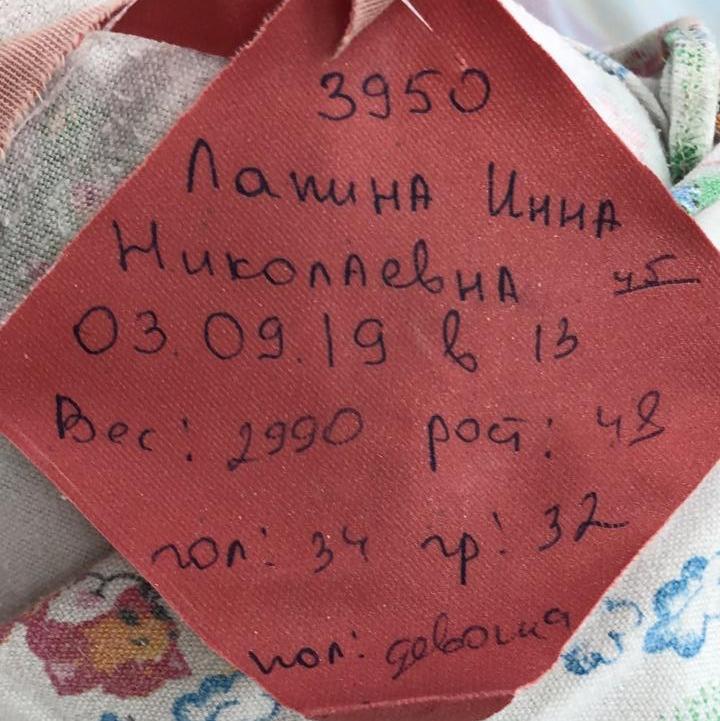 3950
Лапина Инна
Николаевна
03.09.19 в 13 45
Вес: 2990 рост: 48
гол: 34 гр: 32
пол: девочка